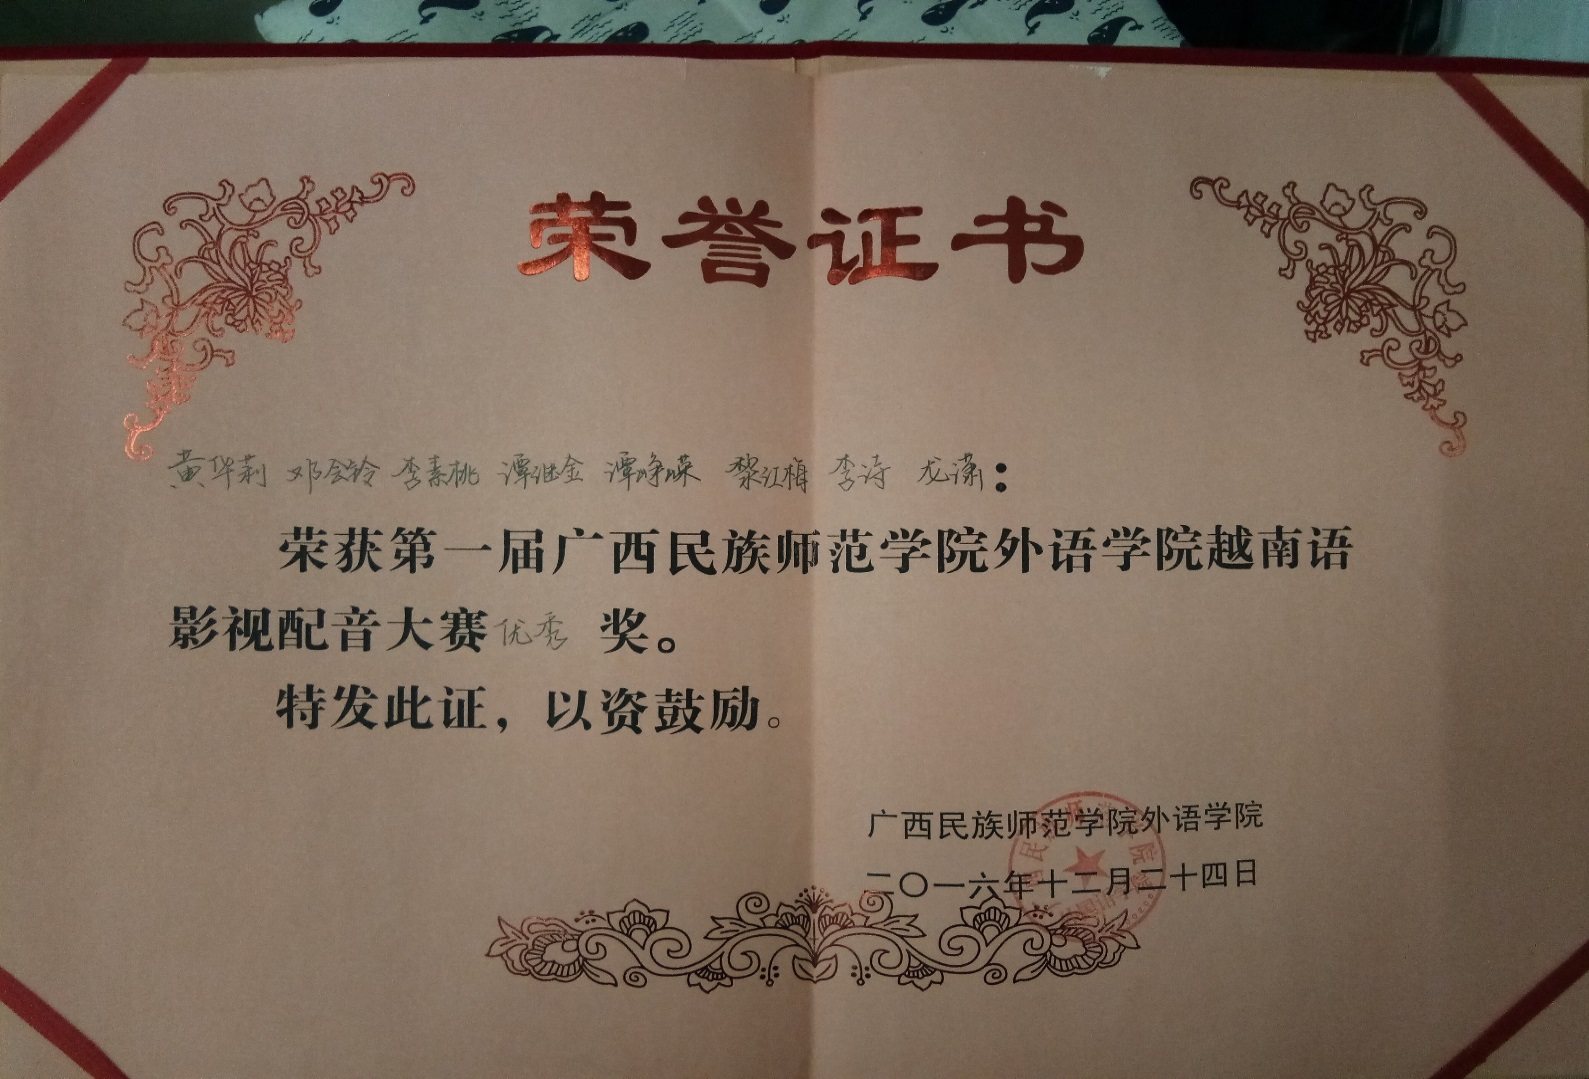 荣誉证书
黄华莉 邓会铃 李素桃 谭继金 谭峥嵘 黎江梅 李诗 龙潇：
荣获第一届广西民族师范学院外语学院越南语
影视配音大赛优秀 奖。
特发此证，以资鼓励。
广西民族师范学院外语学院
二〇一六年十二月二十四日